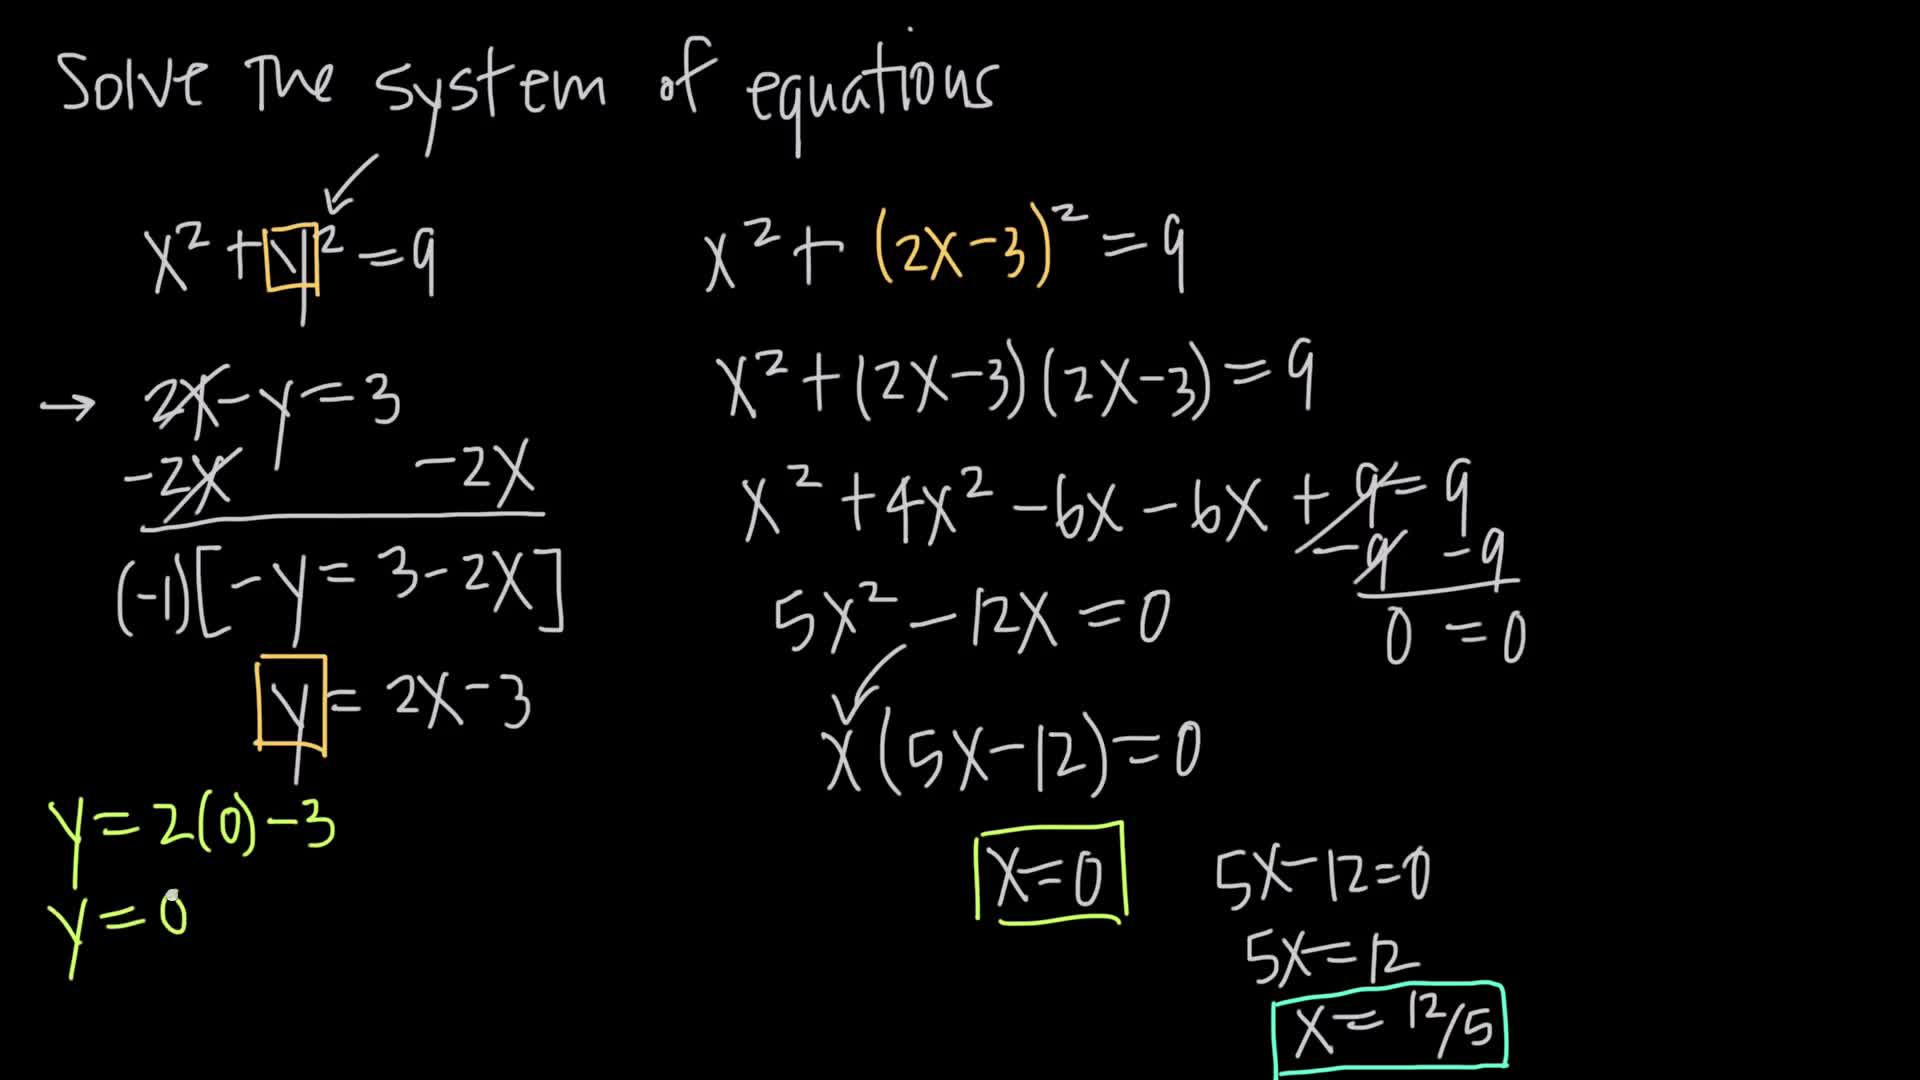 Solve The system of equations
x² + y² = 9
→ 2x - y = 3
-2x -2x
(-1)[-y = 3 - 2x]
y = 2x - 3
y = 2(0) - 3
y = 0
x² + (2x - 3)² = 9
x² + (2x - 3)(2x - 3) = 9
x² + 4x² - 6x - 6x + 9 = 9
-9 -9
0 = 0
5x² - 12x = 0
x(5x - 12) = 0
x = 0
5x - 12 = 0
5x = 12
x = 12/5